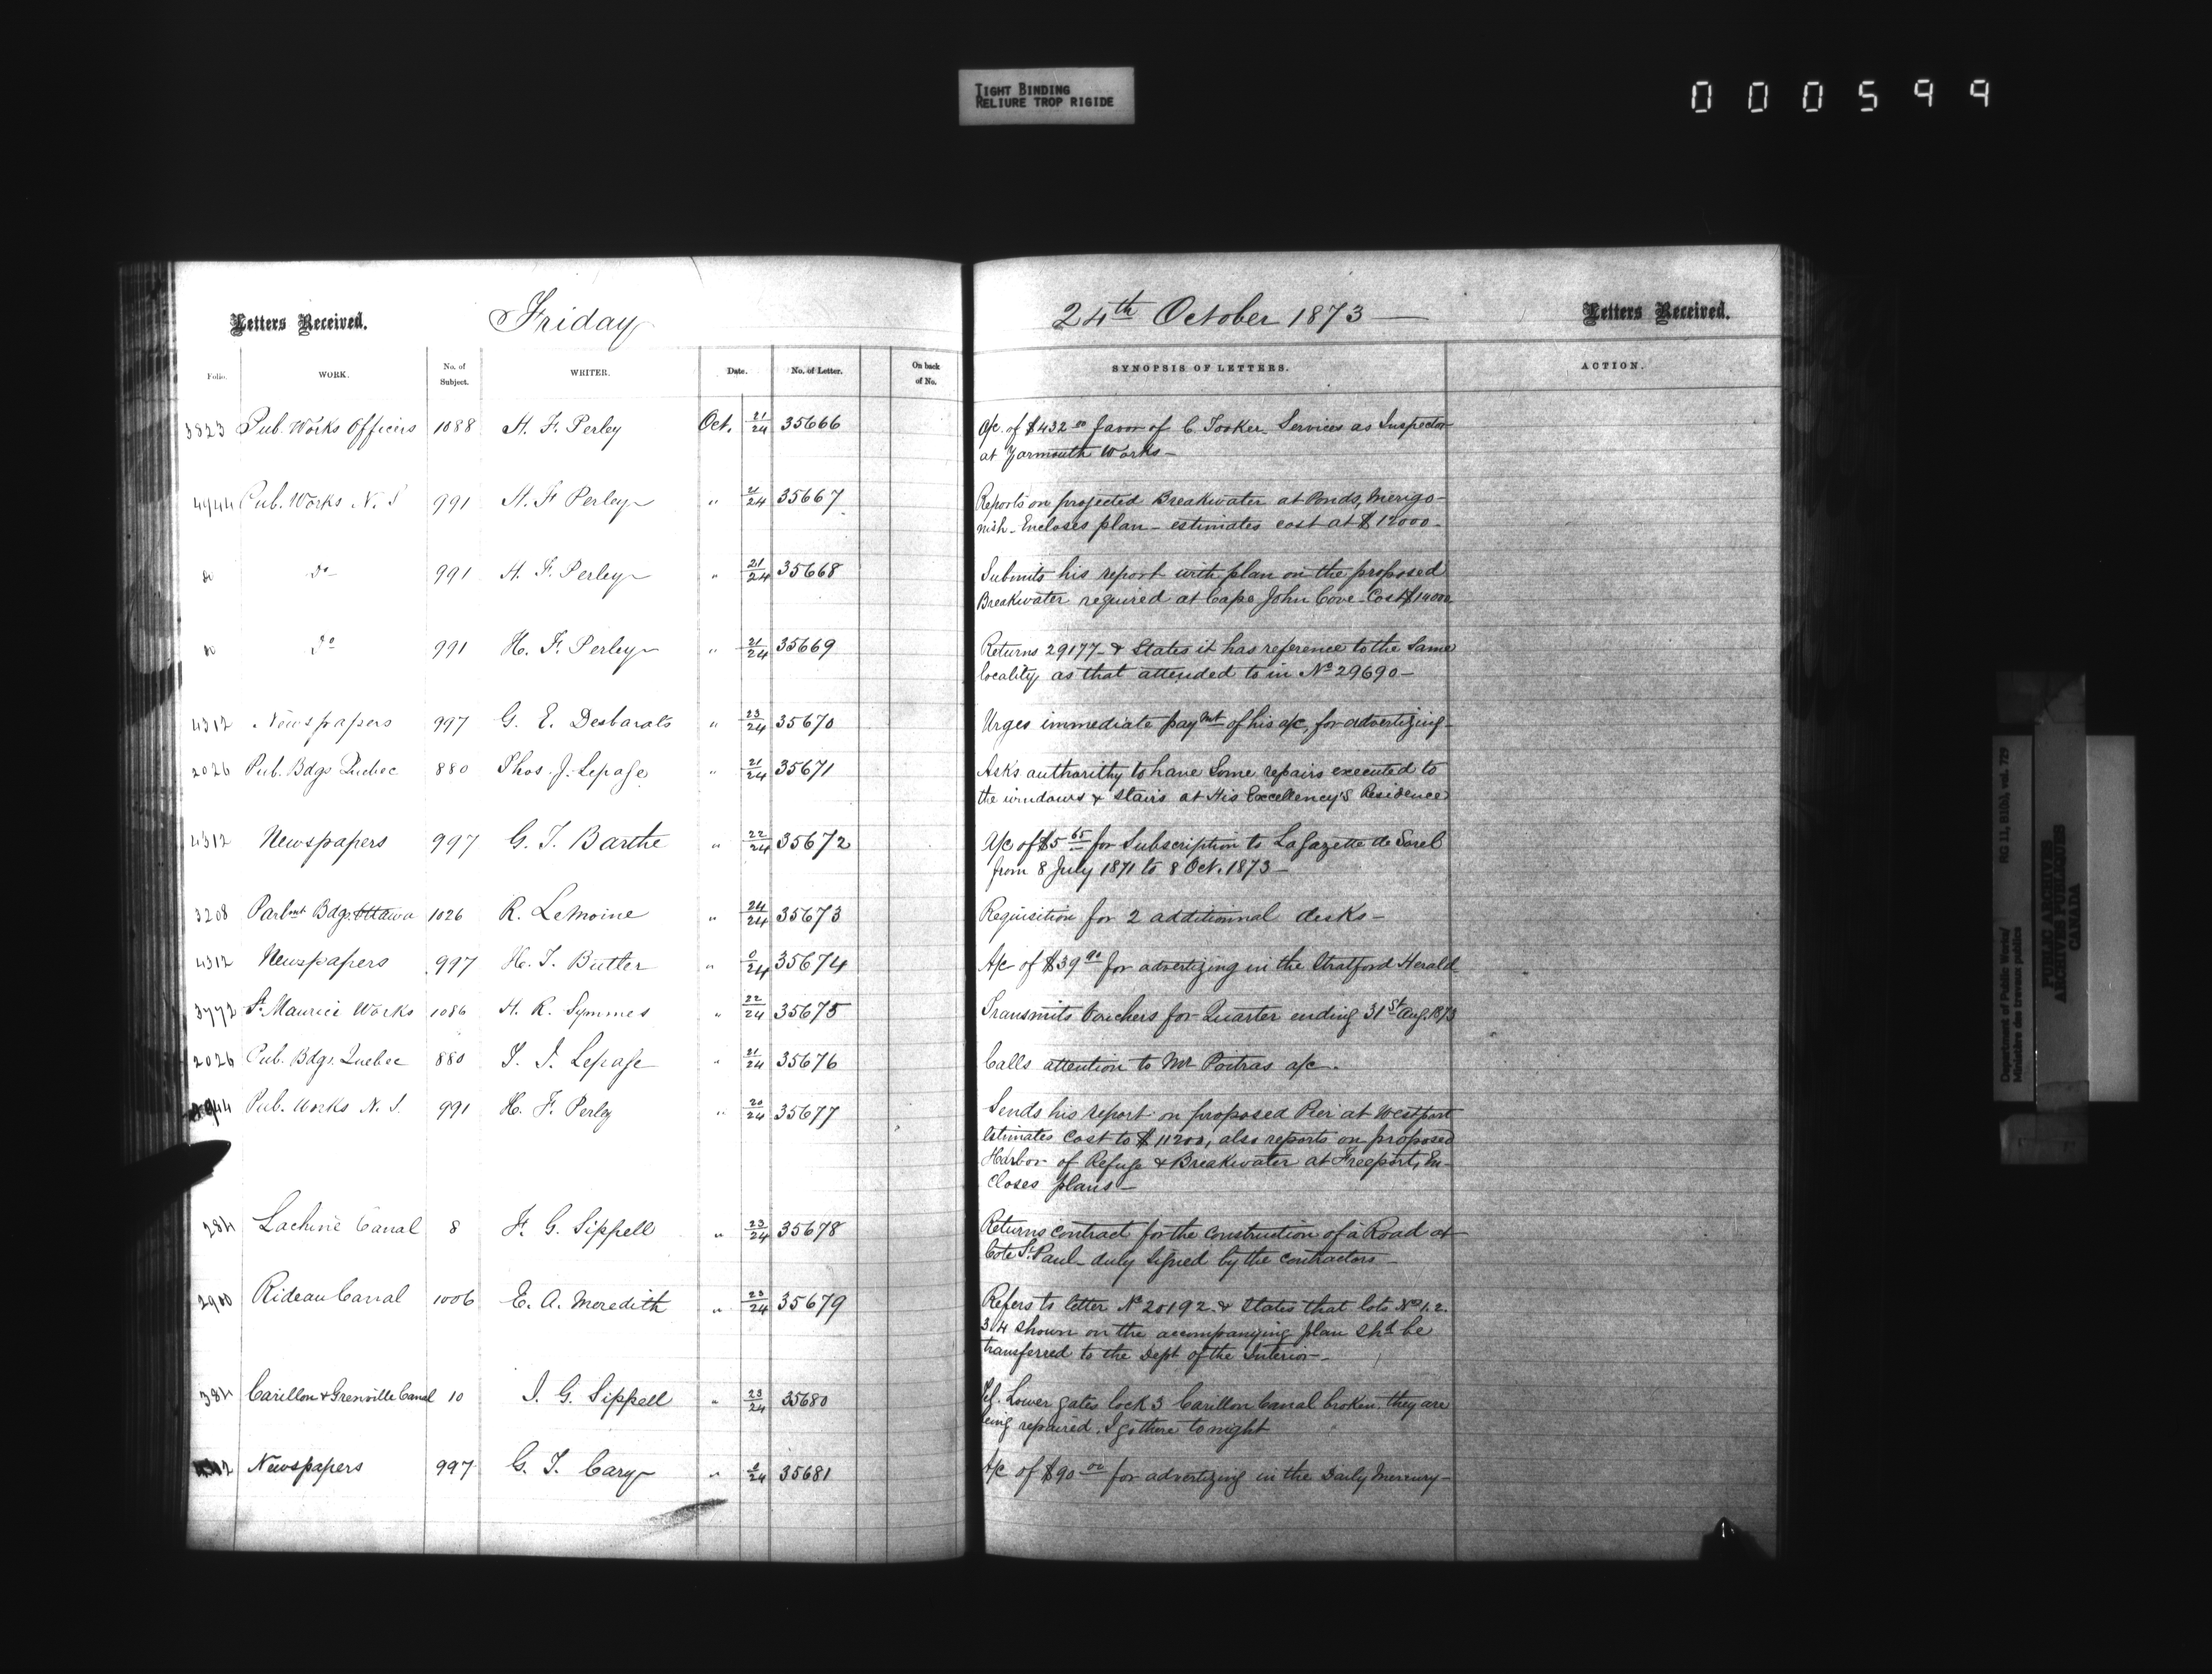 TIGHT BINDING
RELIURE TROP RIGIDE
000599
Letters Received. Friday 24th October 1873 — Letters Received.
Folio. WORK. No. of Subject. WRITER. Date. No. of Letter. On back of No. SYNOPSIS OF LETTERS. ACTION.
3823 Pub. Works Officers 1088 H. F. Perley Oct. 21/24 35666 A/c. of $432.00 favor of C. Tooker. Services as Inspector
at Yarmouth Works—
4944 Pub. Works N. S 991 H. F Perley " 21/24 35667 Reports on projected Breakwater at Ponds, Merigo-
nish - Encloses plan - estimates cost at $12000-
do do 991 H. F. Perley " 21/24 35668 Submits his report with plan on the proposed
Breakwater required at Cape John Cove - Cost $14000
do do 991 H. F. Perley " 21/24 35669 Returns 29177 - & States it has reference to the same
locality as that attended to in No 29690—
4312 Newspapers 997 G. E. Desbarats " 23/24 35670 Urges immediate paymt of his a/c, for advertizing-
2026 Pub. Bdgs Quebec 880 Thos. J. Lepage " 21/24 35671 Asks authorithy to have Some repairs executed to
the windows & Stairs at His Excellency's Residence
4312 Newspapers 997 G. I. Barthe " 22/24 35672 A/c of $5 65 for Subscription to La Gazette de Sorel
from 8 July 1871 to 8 Oct. 1873—
3208 Parlmt Bdgs. Ottawa 1026 R. LeMoine " 24/24 35673 Requisition for 2 additionnal desks—
4312 Newspapers 997 H. T. Butler " 0/24 35674 A/c of $39 90 for advertizing in the Stratford Herald
3772 St. Maurice Works 1086 H. R. Symmes " 22/24 35675 Transmits Vouchers for Quarter ending 31st Aug. 1873
2026 Pub. Bdgs. Quebec 880 T. J. Lepage " 21/24 35676 Calls attention to Mr Poitras a/c.
4944 Pub. Works N. S. 991 H. F. Perley " 20/24 35677 Sends his report on proposed Pier at Westport
Estimates Cost to $11200, also reports on proposed
Harbor of Refuge & Breakwater at Freeport, En-
closes plans—
284 Lachine Canal 8 J. G. Sippell " 23/24 35678 Returns contract for the construction of a Road at
Cote St. Paul - duly signed by the contractors—
2900 Rideau Canal 1006 E. A. Meredith " 23/24 35679 Refers to letter No 20192. & states that lots Nos 1. 2.
3 4 shown on the accompanying plan shd be
transferred to the Dept of the Interior-
384 Carillon & Grenville Canal 10 J. G. Sippell " 23/24 35680 Tel. Lower gates lock 3 Carillon Canal broken. they are
being repaired. I go there to night
4312 Newspapers 997 G. T. Cary " 0/24 35681 A/c of $90 00 for advertizing in the Daily Mercury-
Department of Public Works/ RG 11, B1(b), vol. 729
Ministère des travaux publics
PUBLIC ARCHIVES
ARCHIVES PUBLIQUES
CANADA